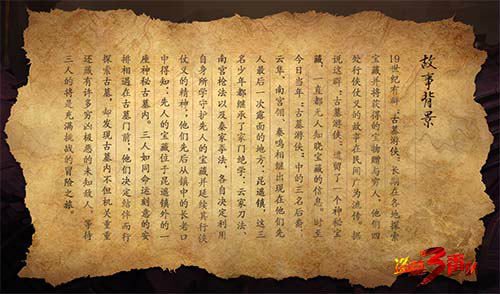 故事背景
19世纪有群“古墓游侠”长期在各地探索
宝藏并将获得的宝物赠与穷人，他们四
处行侠仗义的故事在民间广为流传。据
说这群“古墓游侠”遗留了一个神秘宝
藏，一直都无人知晓宝藏的信息。时至
今日当年“古墓游侠”中的三名后裔，
云隼、南宫翎、秦鸣相继出现在他们先
人最后一次露面的地方：昆通镇，这三
名少年都继承了家门绝学，云家刀法、
南宫枪法以及秦家拳法，各自决定利用
自身所学守护先人的宝藏并延续其行侠
仗义的精神；他们先后从镇中的长老口
中得知，先人的宝藏位于昆通镇外的一
座神秘古墓内。三人如同命运刻意的安
排相遇在古墓门前，他们决定结伴而行
探索古墓，却发现古墓内不但机关重重
还藏有许多穷凶极恶的未知敌人，等待
三人的将是充满挑战的冒险之旅。
盗墓3番